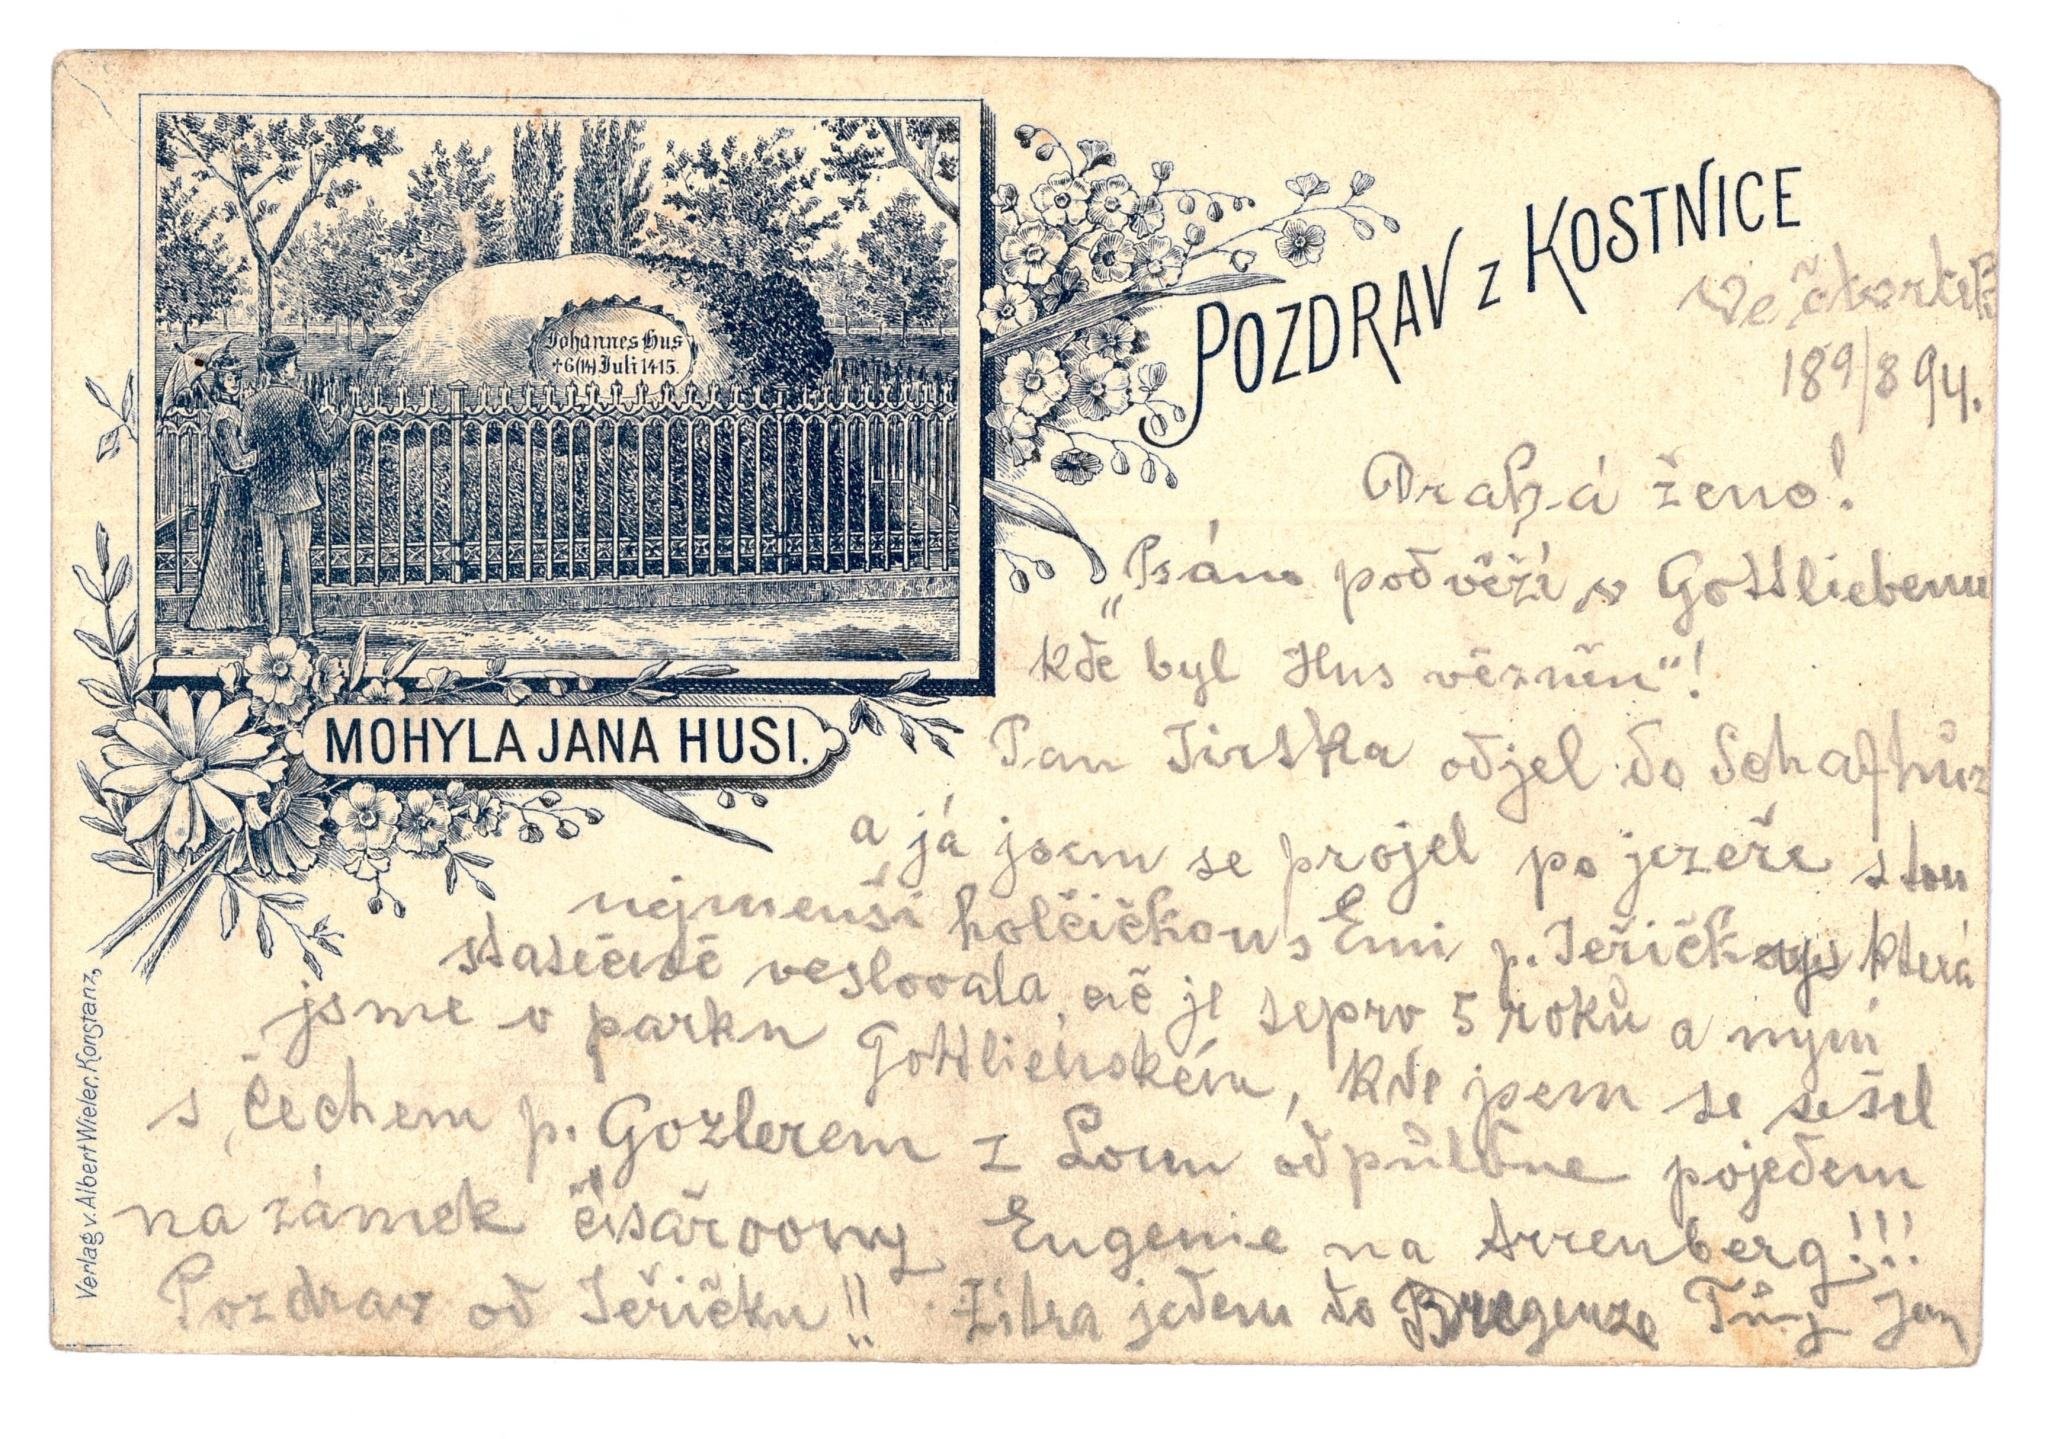 POZDRAV Z KOSTNICE
Johannes Hus
† 6 (14) Juli 1415.
MOHYLA JANA HUSI.
Verlag v. Albert Wieler, Konstanz,
Ve čtvrtek
94.
Drahá ženo!
„Psám pod věží v Gottliebenu
kde byl Hus vězněn"!
Pan Jirska odjel do Schafhúz
a já jsem se projel po jezeře s tou
nejmenší holčičkou s Emi p. Jeřičky která
statečně veslovala, ač je teprv 5 roků a nyní
jsme v parku Gottliebském, kde jsem se sešel
s Čechem p. Gozlerem z Loun odpůldne pojedem
na zámek císařovny Eugenie na Arrenberg!!!
Pozdrav od Jeřičků!! Zítra jedem do Bregenze Tvůj Jan